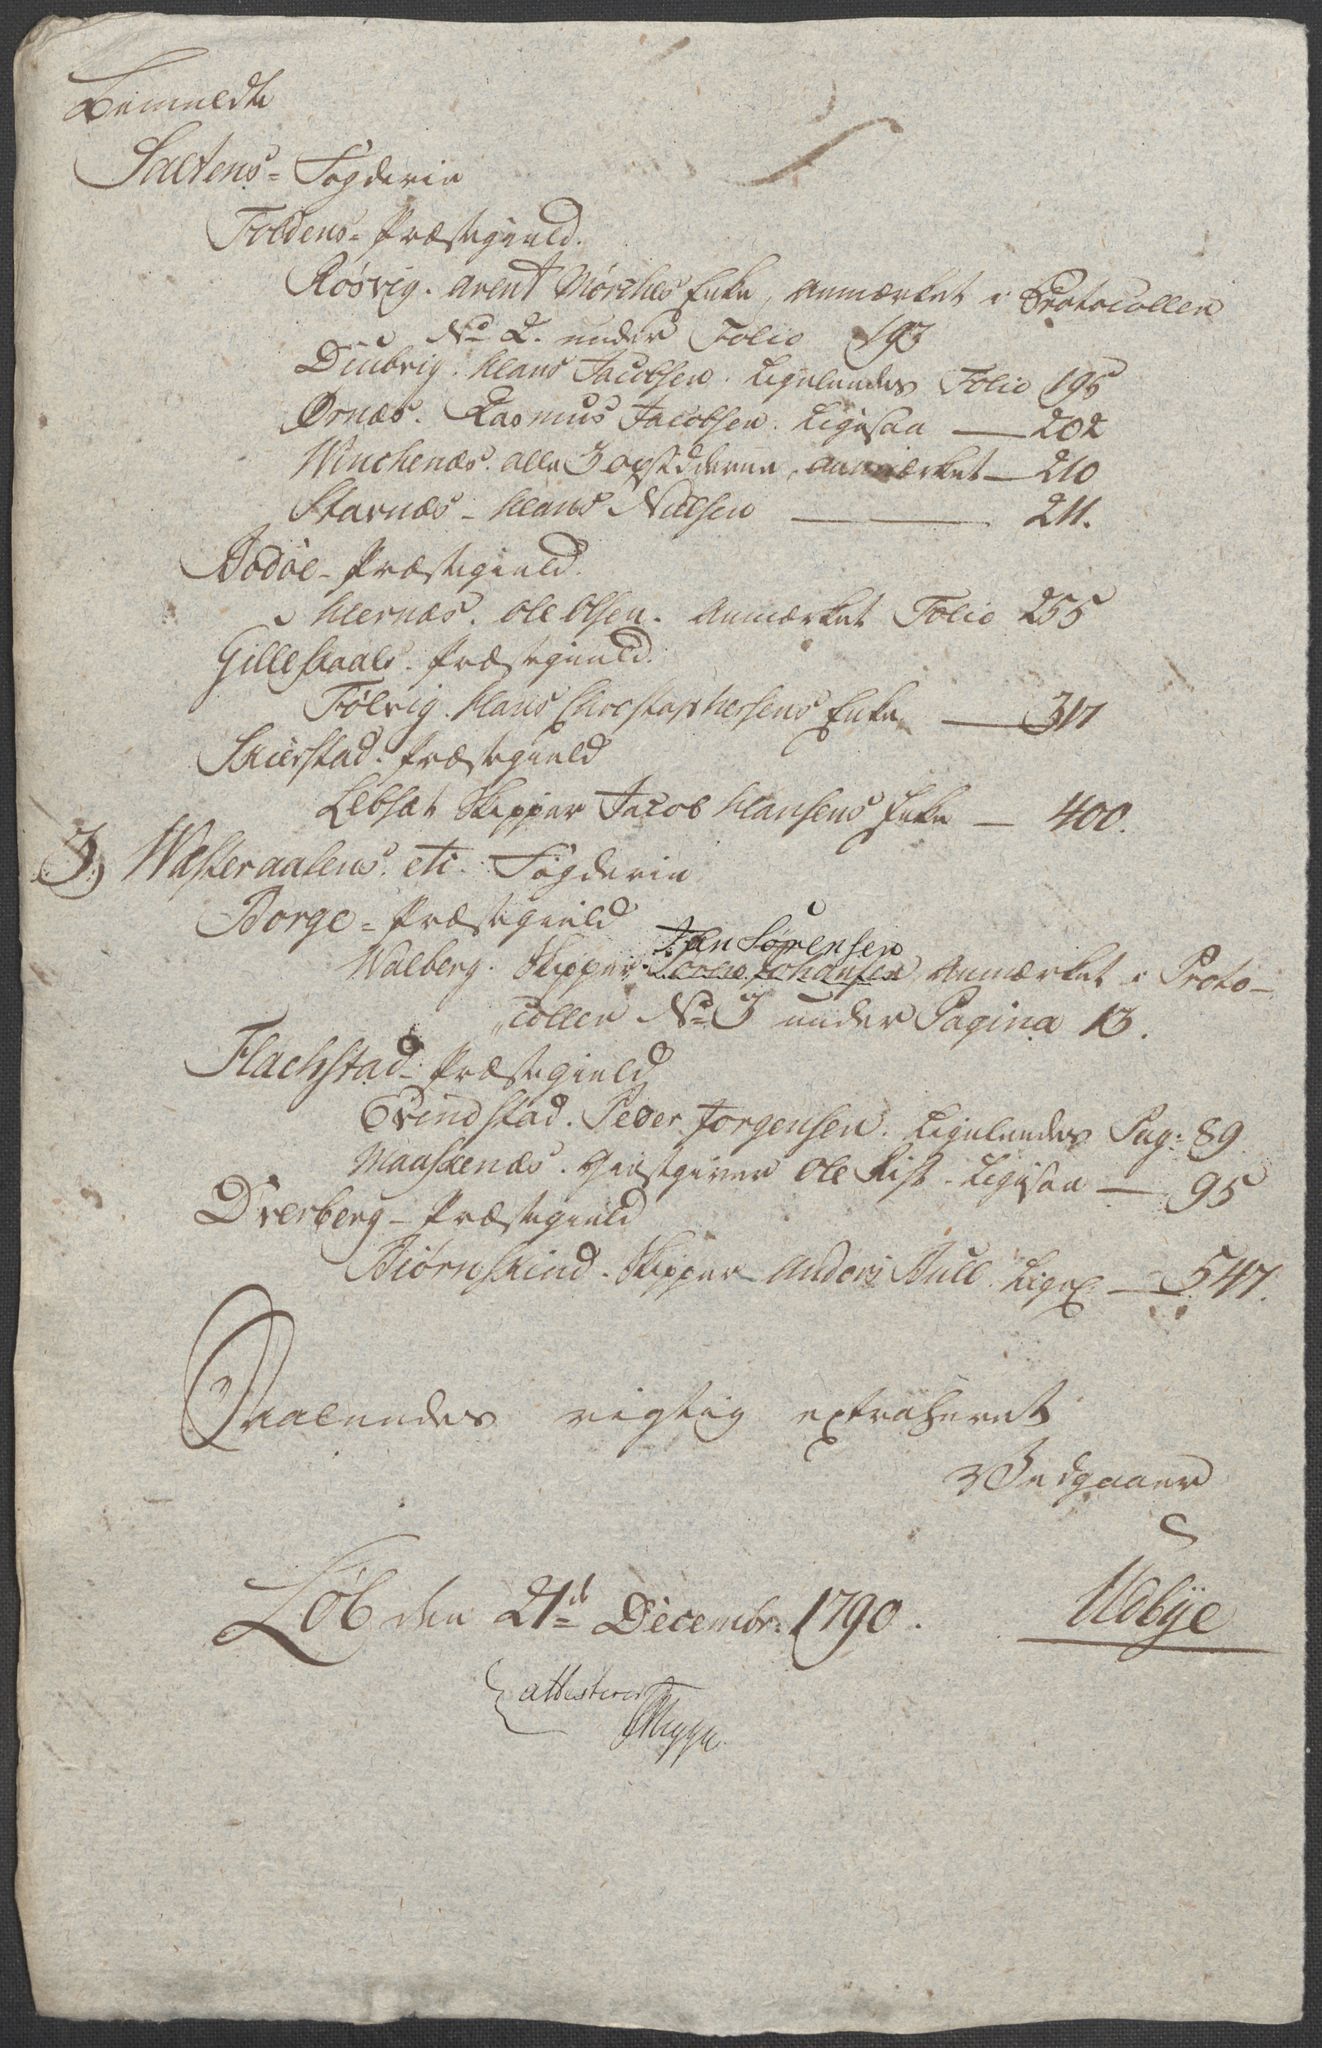 Bemeldte
Saltens- Fogderie
Foldens- Præstegield.
Røsvig. Arent Mørches Enke, Anmærket i Protocollen
No 2. under Folio 193
Diubvig. Hans Jacobsen. Ligeledes Folio 195
Ørnæs. Rasmus Jacobsen. Ligesaa — 202
Winchenæs. alle 3 opsidderne, anmærket — 210
Starnæs - Hans Nielsen — 211.
Bodøe - Præstegield.
Hernæs. Ole Olsen. Anmærket Folio 255
Gilleskaals. Præstegield.
Følvig. Hans Christophersens Enke — 317
Skierstad. Præstegield
Lebsæt Skipper Jacob Hansens Enke — 400.
3) Westeraalens. etc. Fogderie
Borge - Præstegield
Jen Sørensen
Walberg. Skipper Johansen, Anmærket i Proto-
collen No 3 under Pagina 13.
Flachstad - Præstegield
Evindstad. Peder Jørgensen. Ligeledes Pag: 89
Maaskenæs. Giestgiver Ole Rist. Ligesaa — 95
Dverberg - Præstegield
Biørnskind. Skipper Anders Bull. Liges — 547.
Saaledes rigtig extraheret
Vedgaaer
Løb den 21d Decembr: 1790.
Udbye
attesterer